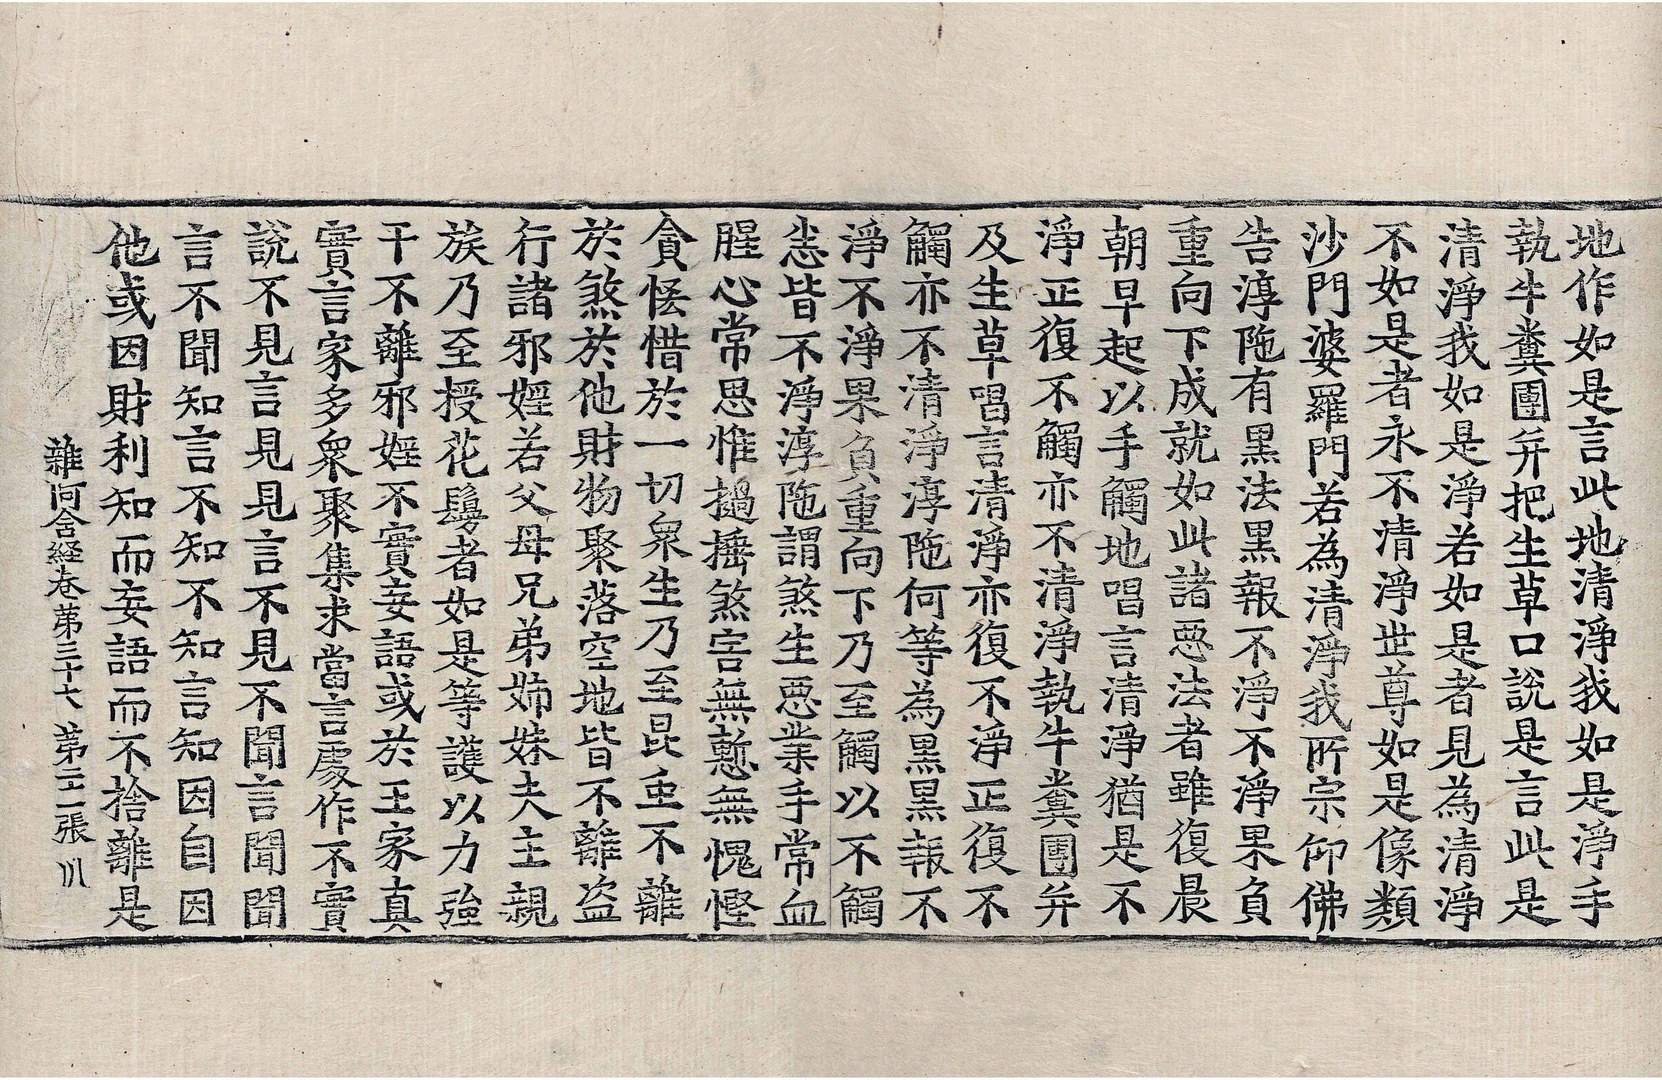 地作如是言此地清淨我如是淨手
執牛糞團并把生草口說是言此是
清淨我如是淨若如是者見為清淨
不如是者永不清淨世尊如是像類
沙門婆羅門若為清淨我所宗仰佛
告淳陁有黑法黑報不淨不淨果負
重向下成就如此諸惡法者雖復晨
朝早起以手觸地唱言清淨猶是不
淨正復不觸亦不清淨執牛糞團并
及生草唱言清淨亦復不淨正復不
觸亦不清淨淳陁何等為黑黑報不
淨不淨果負重向下乃至觸以不觸
悉皆不淨淳陁謂煞生惡業手常血
腥心常思惟撾捶煞害無慙無愧慳
貪悋惜於一切衆生乃至昆虫不離
於煞於他財物聚落空地皆不離盜
行諸邪婬若父母兄弟姉妹夫主親
族乃至授花鬘者如是等護以力強
干不離邪婬不實妄語或於王家真
實言家多衆聚集求當言處作不實
說不見言見見言不見不聞言聞聞
言不聞知言不知不知言知因自因
他或因財利知而妄語而不捨離是
雜阿含経卷第三十七 第二張 川